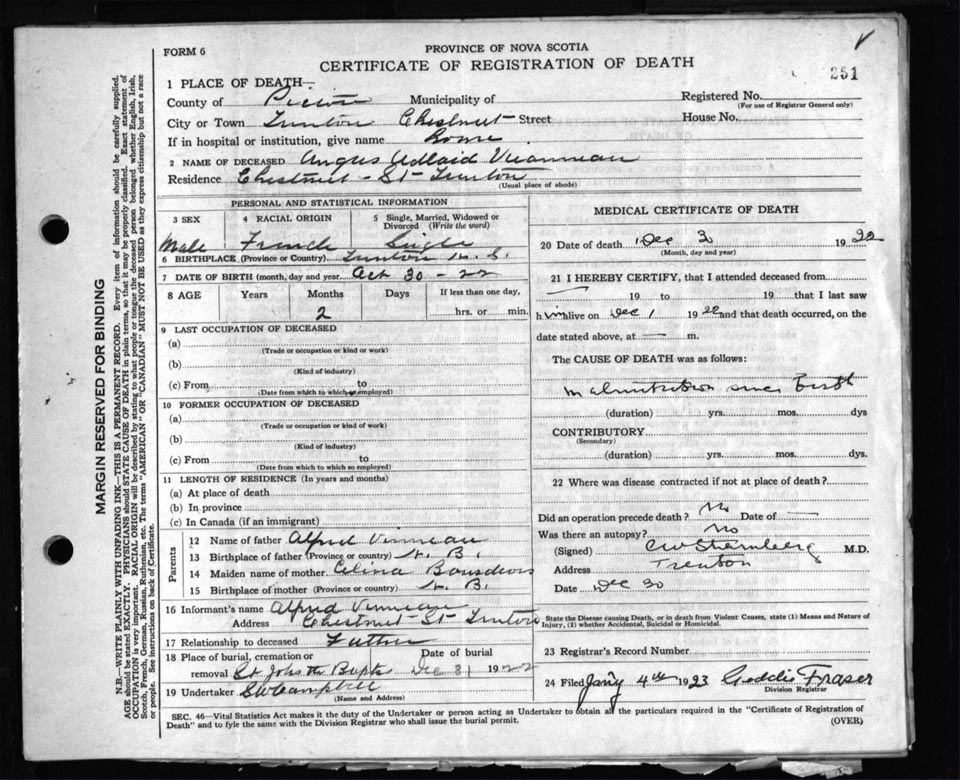 FORM 6
PROVINCE OF NOVA SCOTIA
CERTIFICATE OF REGISTRATION OF DEATH
251
1 PLACE OF DEATH—
County of Pictou Municipality of
Registered No.
(For use of Registrar General only)
City or Town Trenton Chestnut Street House No.
If in hospital or institution, give name home
2 NAME OF DECEASED Angus Adlaid
Residence Chestnut - St - Trenton
(Usual place of abode)
PERSONAL AND STATISTICAL INFORMATION
3 SEX 4 RACIAL ORIGIN 5 Single, Married, Widowed or Divorced (Write the word)
Male French Single
6 BIRTHPLACE (Province or Country) Trenton N. S.
7 DATE OF BIRTH (month, day and year) Oct 30 - 22
8 AGE Years Months Days If less than one day,
2 hrs. or min.
9 LAST OCCUPATION OF DECEASED
(a)
(Trade or occupation or kind or work)
(b)
(Kind of industry)
(c) From to
(Date from which to which employed)
10 FORMER OCCUPATION OF DECEASED
(a)
(Trade or occupation or kind of work)
(b)
(Kind of industry)
(c) From to
(Date from which to which so employed)
11 LENGTH OF RESIDENCE (In years and months)
(a) At place of death
(b) In province
(c) In Canada (if an immigrant)
Parents
12 Name of father Alfred Vinneau
13 Birthplace of father (Province or country) N. B.
14 Maiden name of mother Celina
15 Birthplace of mother (Province or country) N. B.
16 Informant's name Alfred Vinneau
Address Chestnut - St - Trenton
17 Relationship to deceased Father
18 Place of burial, cremation or Date of burial
removal St Johns the Bapts Dec 31 1922
19 Undertaker SW Campbell
(Name and Address)
MEDICAL CERTIFICATE OF DEATH
20 Date of death Dec 1922
(Month, day and year)
21 I HEREBY CERTIFY, that I attended deceased from
19 to 19 that I last saw
h im alive on Dec 1 1922 and that death occurred, on the
date stated above, at — m.
The CAUSE OF DEATH was as follows:
malnutrition since birth
(duration) yrs. mos. dys
CONTRIBUTORY
(Secondary)
(duration) yrs. mos. dys.
22 Where was disease contracted if not at place of death?
Did an operation precede death? No Date of —
Was there an autopsy? No
(Signed) M.D.
Address Trenton
Date Dec 30
State the Disease causing Death, or in death from Violent Causes, state (1) Means and Nature of
Injury, (2) whether Accidental, Suicidal or Homicidal.
23 Registrar's Record Number
24 Filed Jany 4th 1923 Geddie Fraser
Division Registrar
SEC. 46—Vital Statistics Act makes it the duty of the Undertaker or person acting as Undertaker to obtain all the particulars required in the "Certificate of Registration of
Death" and to fyle the same with the Division Registrar who shall issue the burial permit.
(OVER)
MARGIN RESERVED FOR BINDING
N.B.—WRITE PLAINLY WITH UNFADING INK—THIS IS A PERMANENT RECORD. Every item of information should be carefully supplied.
AGE should be stated EXACTLY. PHYSICIANS should STATE CAUSE OF DEATH in plain terms, so that it may be properly classified. Exact statement of
OCCUPATION is very important. RACIAL ORIGIN will be described by stating to what people or tongue the deceased person belonged whether English, Irish,
Scotch, French, German, Russian, Ruthenian, etc. The terms "AMERICAN" OR "CANADIAN" MUST NOT BE USED as they express citizenship but not a race
or people. See instructions on back of Certificate.